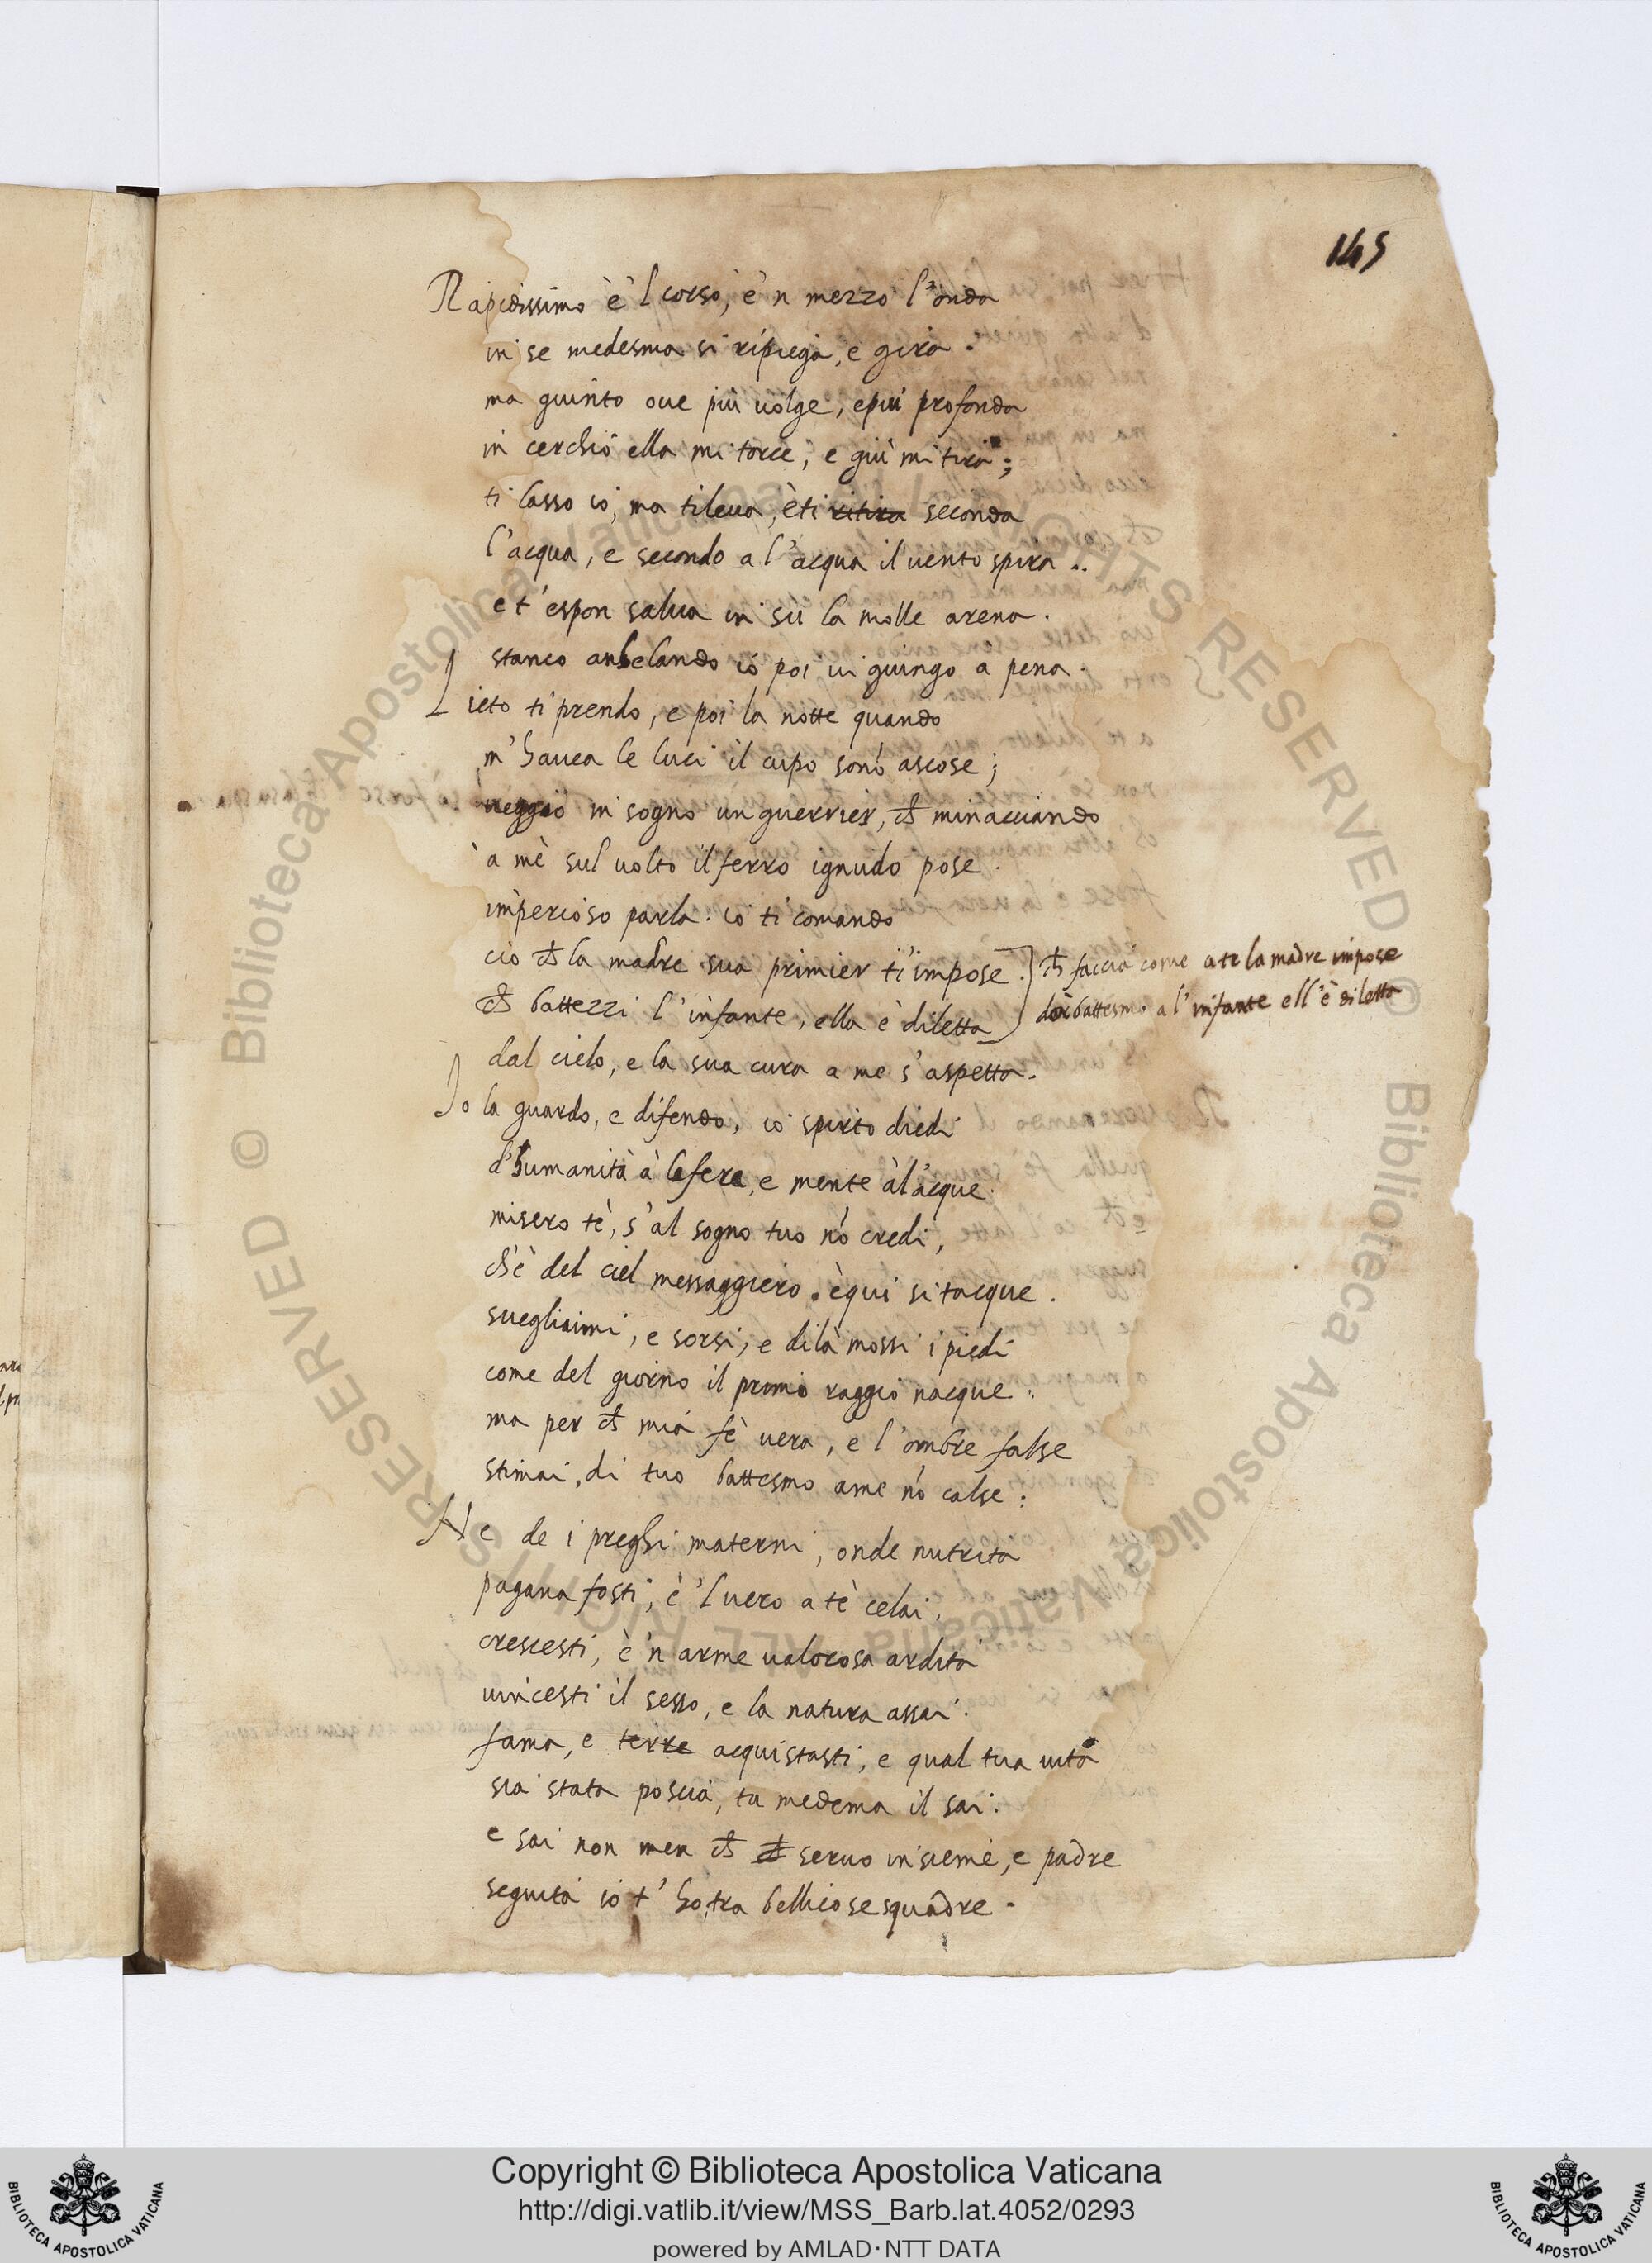 145
Rapidissimo è 'l corso, e 'n mezzo l'onda
in se medesma si ripiega, e gira.
ma giunto oue più uolge, e più profonda
in cerchio ella mi torce, e giù mi tira;
ti lasso io, ma ti leua, è ti ritira seconda
l'acqua, e secondo a l'acqua il uento spira..
e t'espon salua in su la molle arena.
stanco anhelando io poi ui giungo a pena.
Lieto ti prendo, e poi la notte quando
m'hauea le luci il cupo sonó ascose;
ueggio in sogno un guerrier, ch minacciando
à mè sul uolto il ferro ignudo pose.
imperioso parla. io ti comando
ciò ch la madre sua primier t'impose.
ch faccia come a te la madre impose
Ch battezzi l'infante, ella è diletta
dar battesmo a l'infante ell'è diletta
dal cielo, e la sua cura a me s'aspetta.
Io la guardo, e difendo, io spirto diedi
d'humanità à le fere, e mente à l'acque.
misero tè, s'al sogno tuo nó credi,
ch'è del ciel messaggiero. è qui si tacque.
suegliaimi, e sorsi, e di là mossi i piedi
come del giorno il primo raggio nacque:
ma per ch mia fè uera, e l'ombre false
stimai, di tuo battesmo a me nó calse:
Ne de i preghi materni, onde nutrita
pagana fosti, è 'l uero a tè celai,
crescesti, è 'n arme ualorosa ardita
uincesti il sesso, e la natura assai.
fama, e terre acquistasti, e qual tua uita
sia stata poscia, tu medema il sai.
e sai non men ch ch seruo insieme, e padre
seguita io t'ho, tra bellicose squadre.
Copyright © Biblioteca Apostolica Vaticana
http://digi.vatlib.it/view/MSS_Barb.lat.4052/0293
powered by AMLAD·NTT DATA
BIBLIOTECA APOSTOLICA VATICANA
BIBLIOTECA APOSTOLICA VATICANA
Biblioteca Apostolica Vaticana ALL RIGHTS RESERVED ©
Biblioteca Apostolica Vaticana ALL RIGHTS RESERVED ©